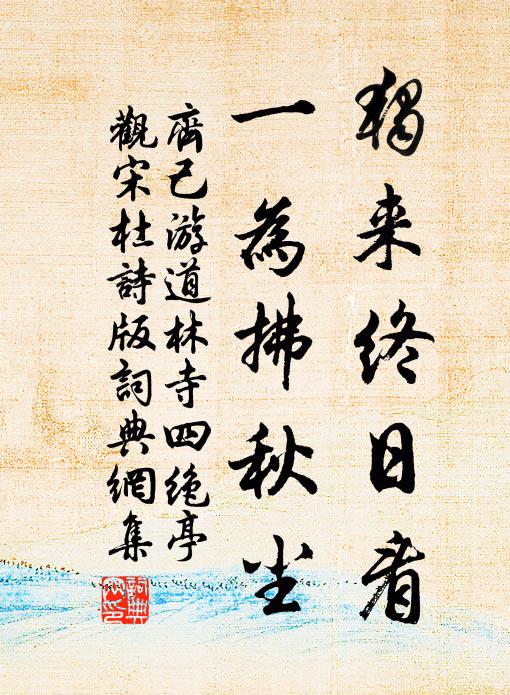 獨来終日看
一為拂秋尘
齊己游道林寺四絶亭
觀宋杜詩版詞典網集